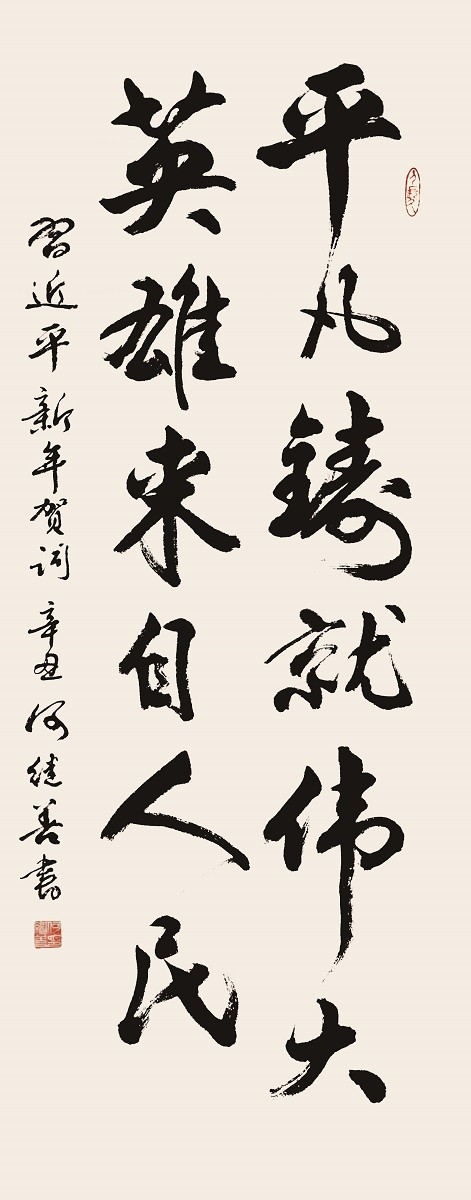 平凡鋳就伟大
英雄来自人民
習近平新年贺词 辛丑 何继善書